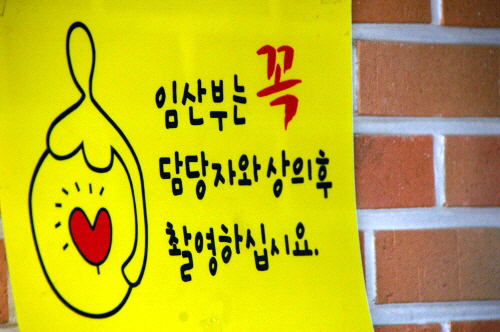 임산부는 꼭
담당자와 상의후
촬영하십시요.